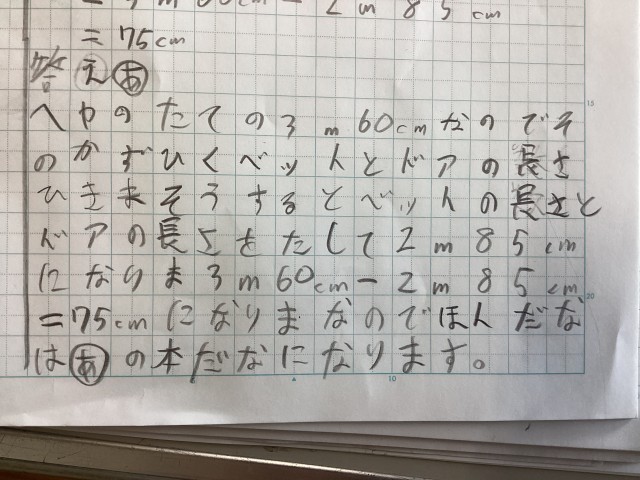 = 3m60cm - 2m85cm
= 75cm
答え あ
へやのたての3m60cmなのでそ
のかずひくベットとドアの長さ
ひきまそうするとベットの長さと
ドアの長さをたして2m85cm
になりま3m60cm-2m85cm
=75cmになりまなのでほんだな
はあの本だなになります。
15
20
10